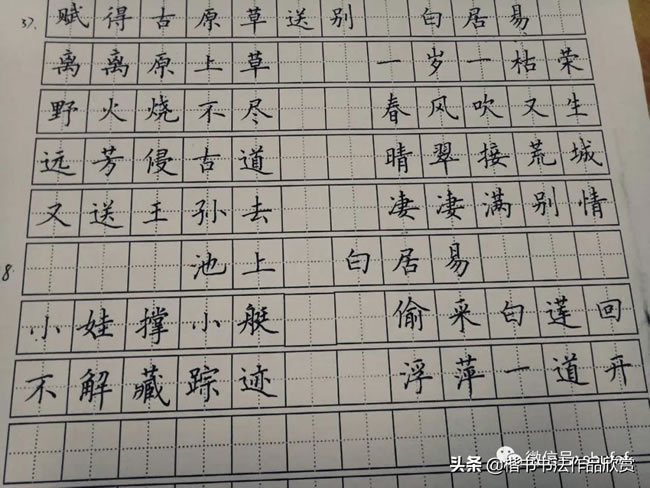 37. 赋得古原草送别 白居易
离离原上草 一岁一枯荣
野火烧不尽 春风吹又生
远芳侵古道 晴翠接荒城
又送王孙去 凄凄满别情
8 池上 白居易
小娃撑小艇 偷采白莲回
不解藏踪迹 浮萍一道开
微信号
头条 @楷书书法作品欣赏